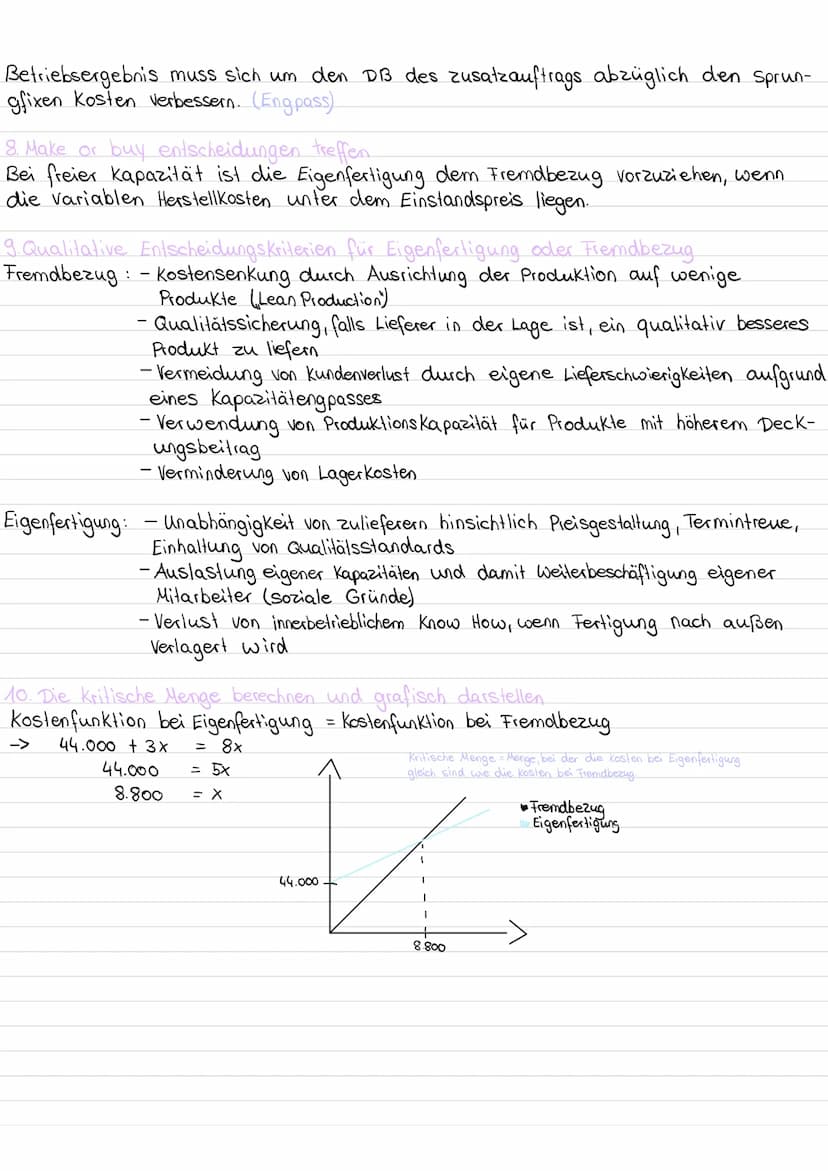 Betriebsergebnis muss sich um den DB des Zusatzauftrags abzüglich den sprun-
gfixen Kosten verbessern. (Engpass)
8. Make or buy entscheidungen treffen
Bei freier Kapazität ist die Eigenfertigung dem Fremdbezug vorzuziehen, wenn
die variablen Herstellkosten unter dem Einstandspreis liegen.
9. Qualitative Entscheidungskriterien für Eigenfertigung oder Fremdbezug
Fremdbezug : - Kostensenkung durch Ausrichtung der Produktion auf wenige
Produkte („Lean Production")
- Qualitätssicherung, falls Lieferer in der Lage ist, ein qualitativ besseres
Produkt zu liefern
- Vermeidung von Kundenverlust durch eigene Lieferschwierigkeiten aufgrund
eines Kapazitätengpasses
- Verwendung von Produktionskapazität für Produkte mit höherem Deck-
ungsbeitrag
- Verminderung von Lagerkosten
Eigenfertigung: - Unabhängigkeit von Zulieferern hinsichtlich Preisgestaltung, Termintreue,
Einhaltung von Qualitätsstandards
- Auslastung eigener Kapazitäten und damit Weiterbeschäftigung eigener
Mitarbeiter (soziale Gründe)
- Verlust von innerbetrieblichem Know How, wenn Fertigung nach außen
verlagert wird
10. Die kritische Menge berechnen und grafisch darstellen
Kostenfunktion bei Eigenfertigung = Kostenfunktion bei Fremdbezug
-> 44.000 + 3x = 8x
44.000 = 5x
8.800 = x
Kritische Menge = Menge, bei der die Kosten bei Eigenfertigung
gleich sind wie die Kosten bei Fremdbezug
Fremdbezug
Eigenfertigung
44.000
8.800